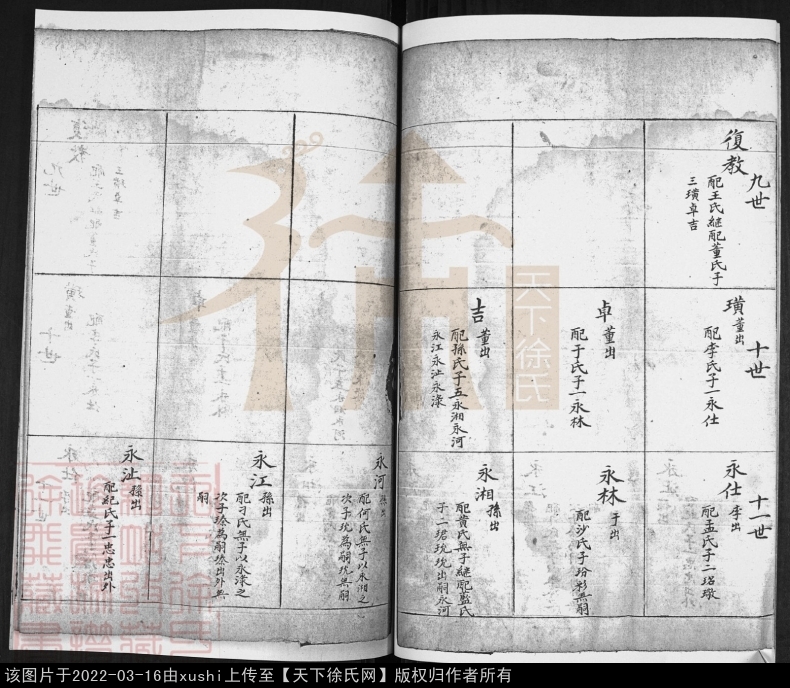 九世
復教
配王氏継配董氏子
三璜卓吉
十世
璜
董出
配李氏子一永仕
卓
董出
配于氏子一永林
吉
董出
配孫氏子五永湘永河
永江永沚永渌
十一世
永仕
李出
配孟氏子二
永林
于出
配沙氏子
永湘
孫出
配黄氏無子継配藍氏
子二珺珫珫出嗣永河
永河
孫出
配何氏無子以永湘之
次子珫為嗣珫無嗣
永江
孫出
配刁氏無子以永渌之
次子
嗣
永沚
孫出
配紀氏子一忠忠出外
天下徐氏
该图片于2022-03-16由xushi上传至【天下徐氏网】版权归作者所有